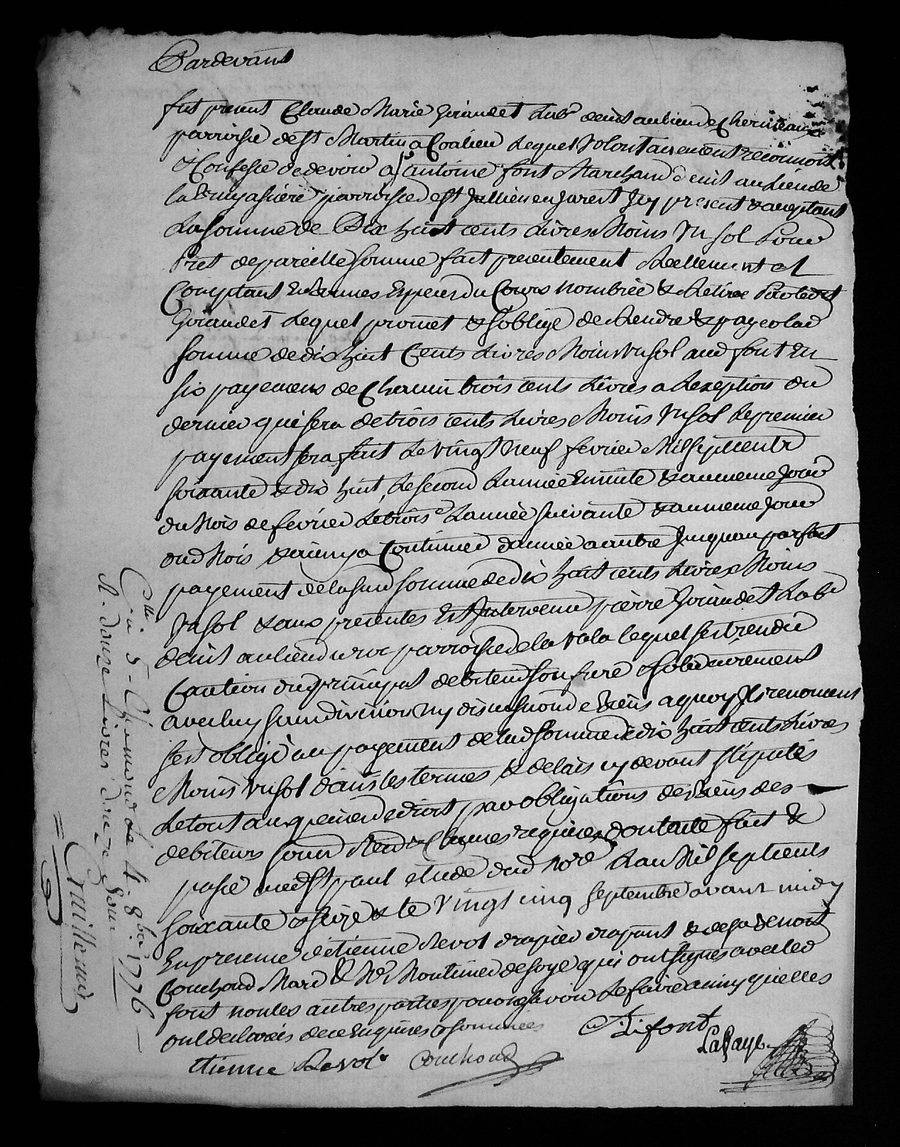 Pardevant
fut present Claude Marie Girandet lab^r demt au lieu de
parroisse de St Martin a Coalieu lequel volontairement reconnoit
& Confesse de devoir a S^r antoine font Marchand demt au Lieu de
parroisse de st Jullien en Jarest Icy present & acceptant
La somme de Dix huit cents Livres Moins Un sol Pour
Pret de pareille somme fait presentement Reellement et
Comptant En Especes du Cours nombrée & Retirée Par led
Girandet Lequel promet & soblige de Rendre & payer lad
somme de dix huit Cents Livres Moins un sol aud font En
six payemens de Chacun trois cents Livres a Lexeption du
dernier qui sera de trois cents Livres Moins Un sol le premier
payement sera fait le vingt neuf fevrier Mil sept cents
soixante & dix huit le second Lannée Ensuite & au meme Jour
du Mois de fevrier le trois^e Lannée suivante & au meme Jour
oud Mois & ainsy a Continuer dannée a autre Jusquau parfait
payement de la susd somme de dix huit cents Livres Moins
Un sol & aux presentes Est Intervenu pierre Girandet Lab^r
demt au lieu parroisse de la Vala lequel sest rendu
Caution du principal debiteur son frere & solidairement
avec luy sans division ny discussion de biens a quoy Ils renoncent
sest obligé au payement de lad somme de dix huit cents Livres
Moins Un sol dans les termes & delais cy devant stipulés
le tout a peine de droit par obligations de biens des
debiteurs soum Rend & Clauses requises dont acte fait &
passé aud St paul etude dud No^re Lan Mil sept cents
soixante & seize & le Vingt cinq septembre avant midy
En presence detienne Revol drapier drapant & de s^r benoit
Couchoud Mard & qui ont signés avec led
font non les autres parties pour ne savoir le faire ainsy quelles
ont declarés de ce Enquises & sommées
Etienne Revol Couchoud A font LaFaye
C^lle à S^t Chamond le 4. 8^bre 1776
R. douze Livres douze sous